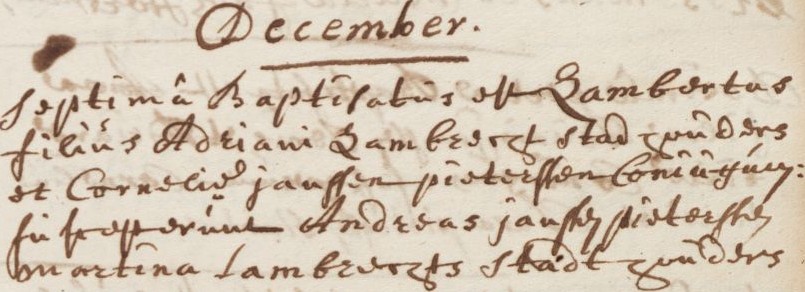 December.
Septimâ Baptisatus est Lambertus
filius Adriani Lambrechts stad houders
et Cornelię janssen pieterssen Coniugum:
susceperunt Andreas janssen pieterssen
martina Lambrechts Stadt houders